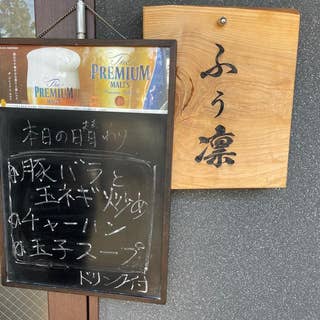 The PREMIUM MALT'S
The PREMIUM MALT'S
本日の日替わり
豚バラと
玉ネギ炒め
チャーハン
玉子スープ
ドリンク付
ふう凛